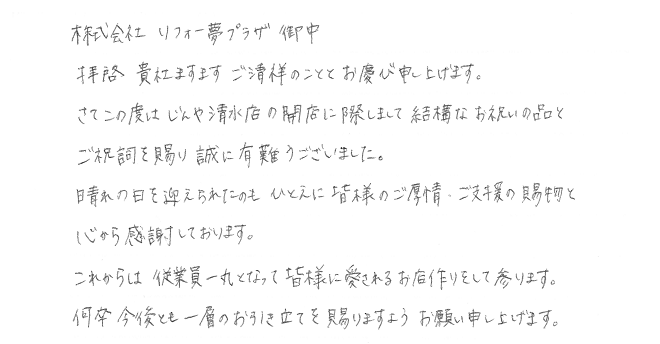 株式会社 リフォー夢プラザ 御中
拝啓 貴社ますます ご清祥のこととお慶び申し上げます。
さてこの度は じんや清水店の開店に際しまして 結構な お祝いの品と
ご祝詞を賜り 誠に 有難うございました。
晴れの日を迎えられたのも ひとえに 皆様のご厚情・ご支援の賜物と
心から感謝しております。
これからは 従業員一丸となって 皆様に愛されるお店作りをして参ります。
何卒 今後とも 一層のお引き立てを 賜りますよう お願い申し上げます。